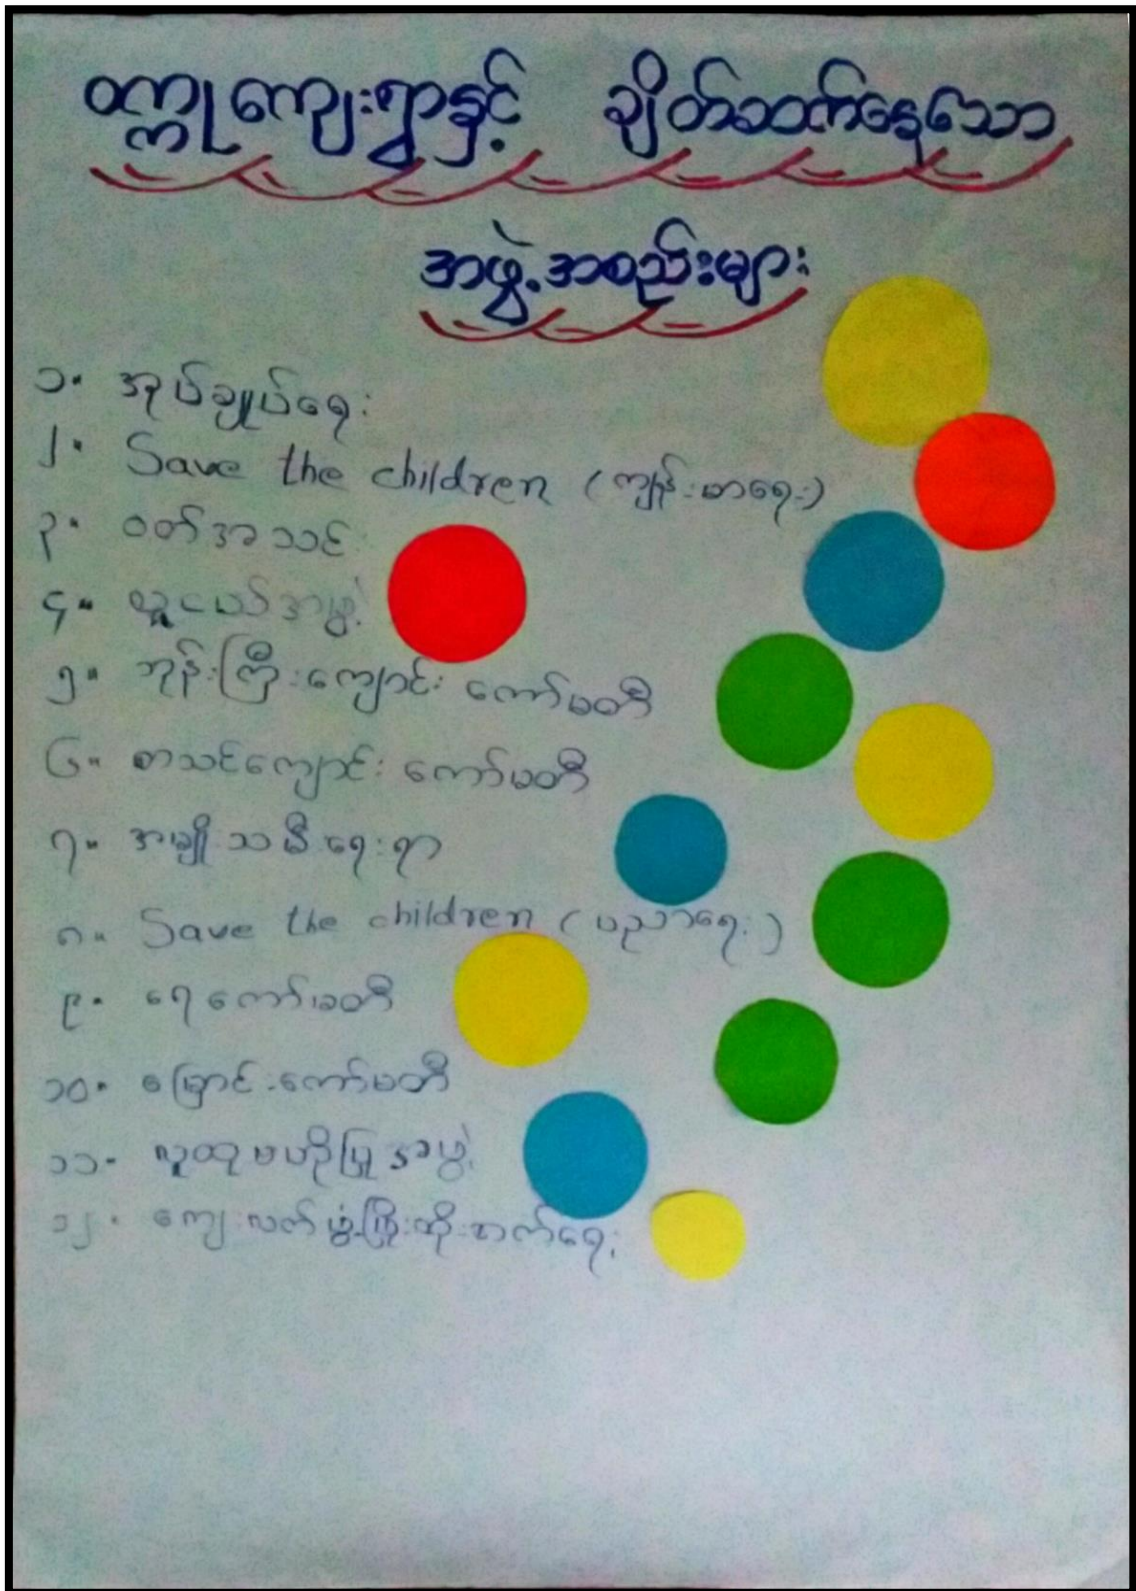 ဝက္ကုကျေးရွာနှင့် ချိတ်ဆက်နေသော
အဖွဲ့အစည်းများ
၁။ အုပ်ချုပ်ရေး
၂။ Save the children (ကျန်းမာရေး)
၃။ ဝတ်အသင်း
၄။ လူငယ်အဖွဲ့
၅။ ဘုန်းကြီးကျောင်း ကော်မတီ
၆။ စာသင်ကျောင်း ကော်မတီ
၇။ အမျိုးသမီးရေးရာ
၈။ Save the children (ပညာရေး)
၉။ ရေကော်မတီ
၁၀။ မြောင်းကော်မတီ
၁၁။ လူထုဗဟိုပြုအဖွဲ့
၁၂။ ကျေးလက်ဖွံ့ဖြိုးတိုးတက်ရေး